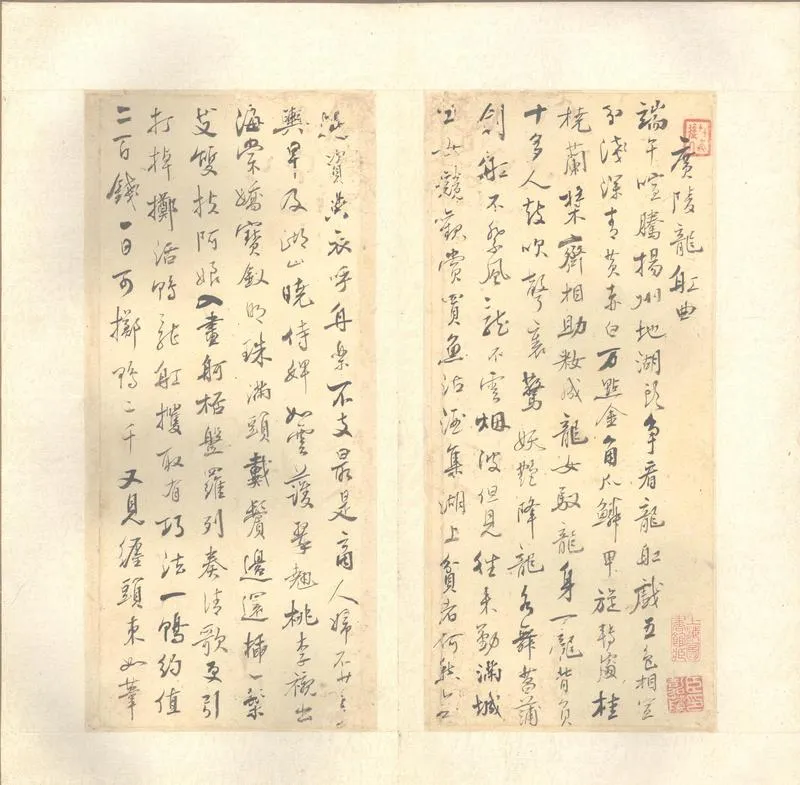 廣陵龍舡曲
端午喧騰揚州地湖頭争看龍舡戲五色相宣
分淺深青黄赤白万點金角爪鱗甲旋轉處桂
橈蘭槳齊相助救成龍女馭龍身一龍背負
十多人鼓吹聲裏驚妖艷降龍各舞菖蒲
劍舡不禁風龍不雲烟波但見往来勤滿城
士女競觀賞買魚沽酒集湖上貧者何
資典衣呼舟樂不支最是商人婦不
輿早及湖山曉侍婢如雲護翠翹桃李襯出
海棠嬌寶釵明珠滿頭戴鬢邊還插一葉
艾雙扶阿娘入畫舸杯盤羅列奏清歌更引
打掉擲活鴨龍舡攫取有巧法一鴨約值
二百錢一日可擲鴨二千又見纏頭束如筆